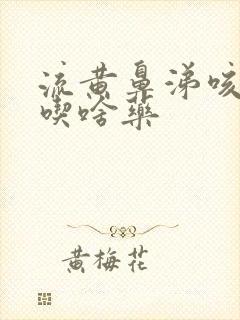 流黄鼻涕咳
喫啥药
黄梅花